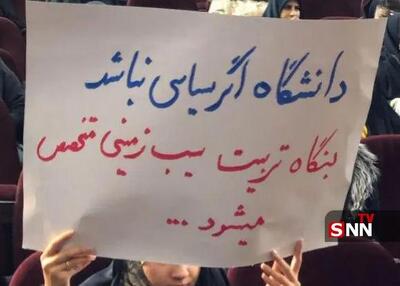 دانشگاه اگر سیاسی نباشد
بنگاه تربیت سیب زمینی متخصص
میشود ...
SNN TV